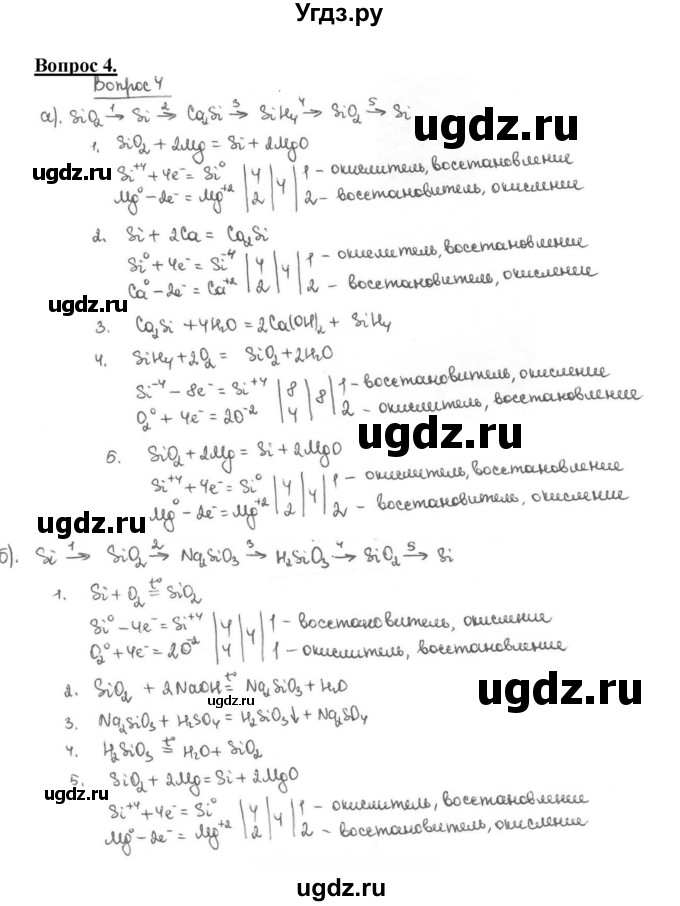 Угдз.ру
Вопрос 4.
Вопрос 4
а). SiO₂ →¹ Si →² Ca₂Si →³ SiH₄ →⁴ SiO₂ →⁵ Si
ugdz.ru
1. SiO₂ + 2Mg = Si + 2MgO
ugdz.ru
Si⁺⁴ + 4e⁻ = Si⁰ | 4 | 4 | 1 - окислитель, восстановление
Mg⁰ - 2e⁻ = Mg⁺² | 2 | | 2 - восстановитель, окисление
2. Si + 2Ca = Ca₂Si
Si⁰ + 4e⁻ = Si⁻⁴ | 4 | 4 | 1 - окислитель, восстановление
Ca⁰ - 2e⁻ = Ca⁺² | 2 | | 2 - восстановитель, окисление
ugdz.ru
ugdz.ru
3. Ca₂Si + 4H₂O = 2Ca(OH)₂ + SiH₄
4. SiH₄ + 2O₂ = SiO₂ + 2H₂O
Si⁻⁴ - 8e⁻ = Si⁺⁴ | 8 | 8 | 1 - восстановитель, окисление
O₂⁰ + 4e⁻ = 2O⁻² | 4 | | 2 - окислитель, восстановление
ugdz.ru
5. SiO₂ + 2Mg = Si + 2MgO
Si⁺⁴ + 4e⁻ = Si⁰ | 4 | 4 | 1 - окислитель, восстановление
Mg⁰ - 2e⁻ = Mg⁺² | 2 | | 2 - восстановитель, окисление
ugdz.ru
ugdz.ru
б). Si →¹ SiO₂ →² Na₂SiO₃ →³ H₂SiO₃ →⁴ SiO₂ →⁵ Si
1. Si + O₂ =t° SiO₂
Si⁰ - 4e⁻ = Si⁺⁴ | 4 | 4 | 1 - восстановитель, окисление
O₂⁰ + 4e⁻ = 2O⁻² | 4 | | 1 - окислитель, восстановление
ugdz.ru
2. SiO₂ + 2NaOH =t° Na₂SiO₃ + H₂O
3. Na₂SiO₃ + H₂SO₄ = H₂SiO₃↓ + Na₂SO₄
ugdz.ru
4. H₂SiO₃ =t° H₂O + SiO₂
5. SiO₂ + 2Mg = Si + 2MgO
ugdz.ru
Si⁺⁴ + 4e⁻ = Si⁰ | 4 | 4 | 1 - окислитель, восстановление
Mg⁰ - 2e⁻ = Mg⁺² | 2 | | 2 - восстановитель, окисление
ugdz.ru
ugdz.ru